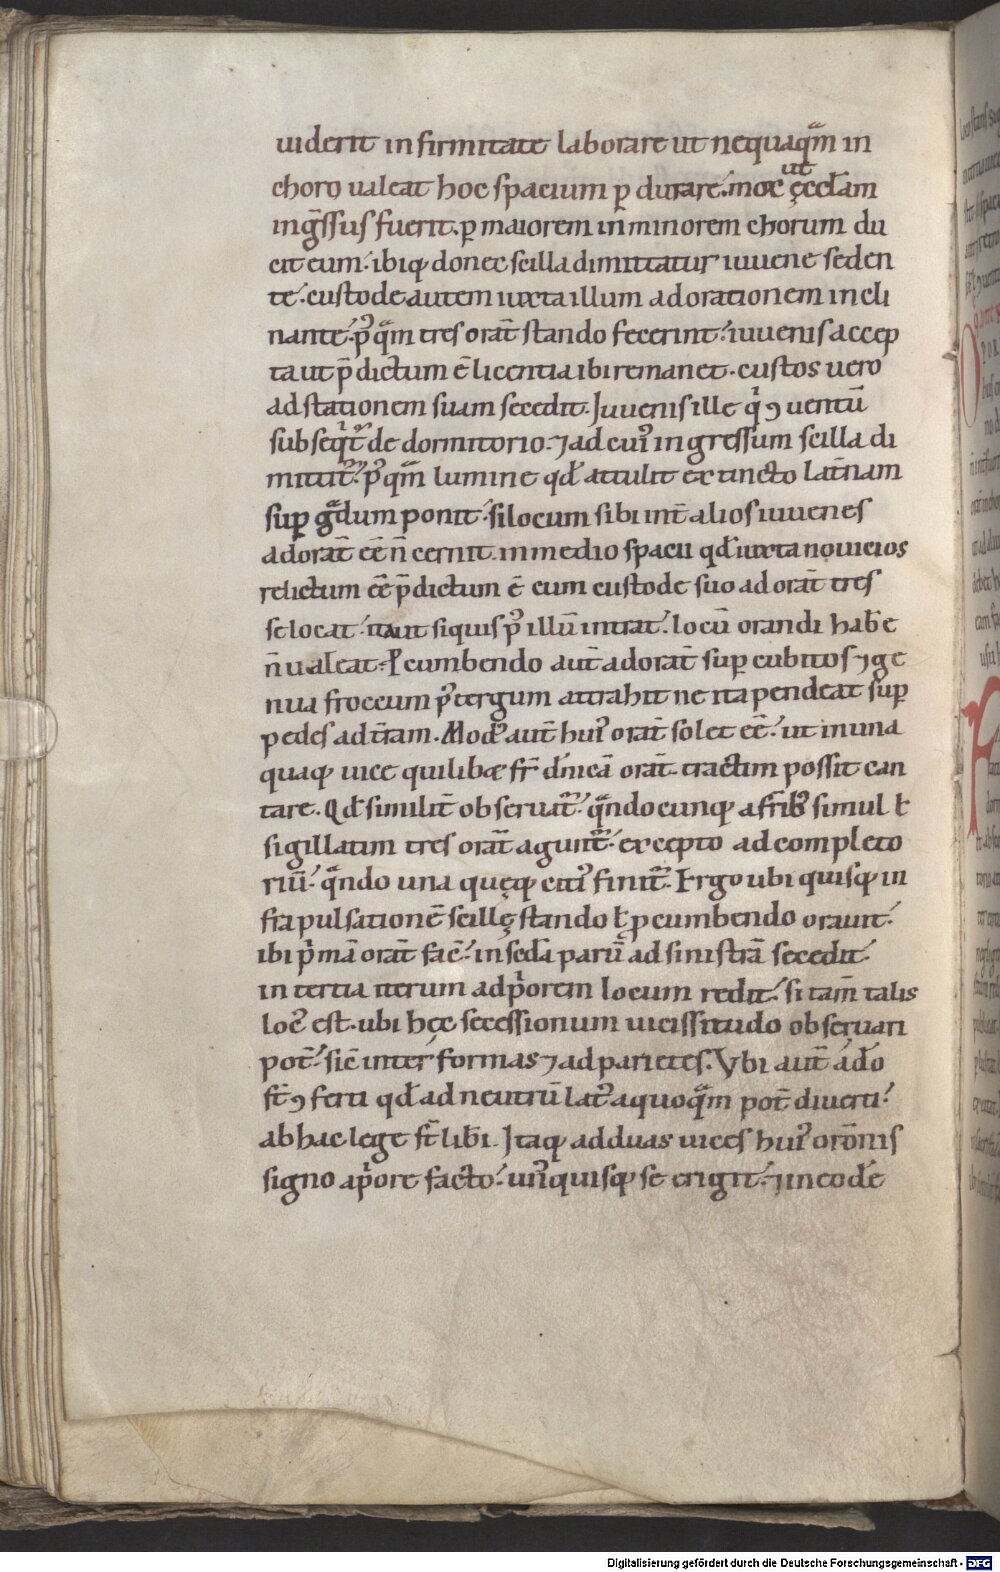 uiderit infirmitate laborare ut nequaqᷓm in
choro ualeat hoc spacium ꝑ durare. mox ut ęcclam
ingᷓssus fuerit. ꝑ maiorem in minorem chorum du
cit eum. ibiqꝫ donec scilla dimittatur iuuene seden
te. custode autem iuxta illum ad orationem incli
nante. pꝰqᷓm tres orat̄ stando fecerint. iuuenis accep
ta ut p̄dictum ē licentia ibi remanet. custos uero
ad stationem suam secedit. Juuenis ille qͥ ꝯuentū
subseqͥt᷑ de dormitorio. ⁊ ad cuiꝰ ingressum scilla di
mittit᷑. pꝰqᷓm lumine qđ attulit extincto lat̄nam
suꝑ gᷓdum ponit. si locum sibi int̄ alios iuuenes
ad orat̄ eē n̄ cernit. in medio spacii qđ iuxta nouicios
relictum eē p̄dictum ē cum custode suo ad orat̄ tres
se locat. ita ut siquis pꝰ illū intrat. locū orandi habe
n̄ ualeat. Ꝓcumbendo aut̄ ad orat̄ suꝑ cubitos ⁊ ge
nua froccum pꝰ tergum attrahit ne ita pendeat suꝑ
pedes ad t̄ram. Modꝰ aut̄ huiꝰ orat̄ solet eē. ut in una
quaqꝫ uice quilibæ fr̄ dn̄icā orat̄ tractim possit can
tare. Qđ similit̄ obseruat᷑. qᷓndocunqꝫ a fribꝰ simul ł
sigillatim tres orat̄ agunt᷑. excepto ad completo
riū. qᷓndo una quęqꝫ citiꝰ finit᷑. Ergo ubi quisqꝫ in
fra pulsationē scillę stando ł ꝓcumbendo orauit.
ibi pͥmā orat̄ fac̄. in seđa parū ad sinistrā secedit.
in tertia iterum ad pͥorem locum redit. si tam̄ talis
locꝰ est. ubi hęc secessionum uicissitudo obseruari
pot̄. sic̄ inter formas ⁊ ad parietes. Vbi aut̄ ađo
st̄ ꝯferti qđ ad neutrū latꝰ aquoqᷓm pot̄ diuerti.
ab hac lege st̄ libi. Jtaqꝫ ad duas uices huiꝰ orōnis
signo a pͥore facto. unꝰquisqꝫ se erigit. ⁊ in eođe
Digitalisierung gefördert durch die Deutsche Forschungsgemeinschaft - DFG